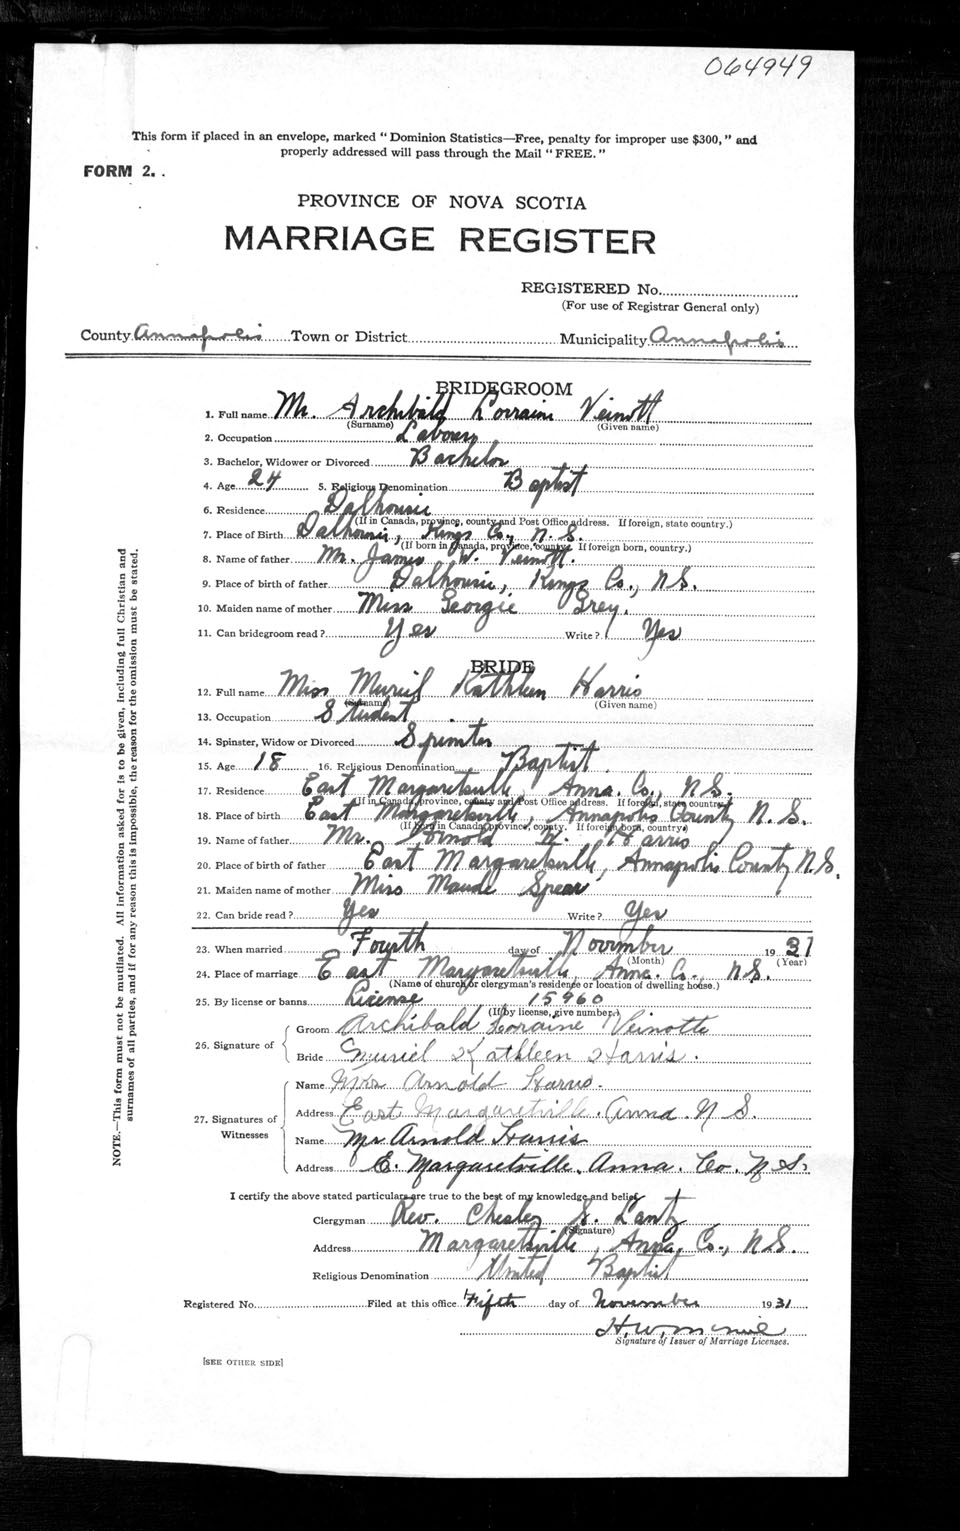 064949
This form if placed in an envelope, marked "Dominion Statistics—Free, penalty for improper use $300," and
properly addressed will pass through the Mail "FREE."
FORM 2. .
PROVINCE OF NOVA SCOTIA
MARRIAGE REGISTER
REGISTERED No.
(For use of Registrar General only)
County Annapolis Town or District Municipality Annapolis
BRIDEGROOM
1. Full name Mr. Archibald Lorraine Veinott
(Surname) (Given name)
2. Occupation Laborer
3. Bachelor, Widower or Divorced Bachelor
4. Age 24 5. Religious Denomination Baptist
6. Residence Dalhousie
(If in Canada, province, county and Post Office address. If foreign, state country.)
7. Place of Birth Dalhousie, Kings Co., N.S.
(If born in Canada, province, county. If foreign born, country.)
8. Name of father Mr. James W. Veinott.
9. Place of birth of father Dalhousie, Kings Co., N.S.
10. Maiden name of mother Miss Georgie Grey.
11. Can bridegroom read? Yes Write? Yes
BRIDE
12. Full name Miss Muriel Kathleen Harris
(Surname) (Given name)
13. Occupation Student
14. Spinster, Widow or Divorced Spinster
15. Age 18 16. Religious Denomination Baptist
17. Residence East Margaretsville, Anna. Co., N.S.
(If in Canada, province, county and Post Office address. If foreign, state country)
18. Place of birth East Margaretsville, Annapolis County N.S.
(If born in Canada, province, county. If foreign born, country)
19. Name of father Mr. Arnold Harris
20. Place of birth of father East Margaretsville, Annapolis County N.S.
21. Maiden name of mother Miss Maude Spear
22. Can bride read? Yes Write? Yes
23. When married Fourth day of November 1931
(Month) (Year)
24. Place of marriage East Margaretsville, Anna. Co., N.S.
(Name of church or clergyman's residence or location of dwelling house.)
25. By license or banns License 15960
(If by license, give number.)
26. Signature of
Groom Archibald Lorraine Veinotte
Bride Muriel Kathleen Harris.
27. Signatures of Witnesses
Name Mrs Arnold Harris.
Address East Margaretville. Anna. N S.
Name Mr Arnold Harris
Address E. Margaretville. Anna. Co. N S.
I certify the above stated particulars are true to the best of my knowledge and belief.
Clergyman Rev. Chesley S. Lantz
(Signature)
Address Margaretsville, Anna. Co., N.S.
Religious Denomination United Baptist
Registered No. Filed at this office Fifth day of November 1931
H. W.
Signature of Issuer of Marriage Licenses.
[SEE OTHER SIDE]
NOTE.—This form must not be mutilated. All information asked for is to be given, including full Christian and
surnames of all parties, and if for any reason this is impossible, the reason for the omission must be stated.